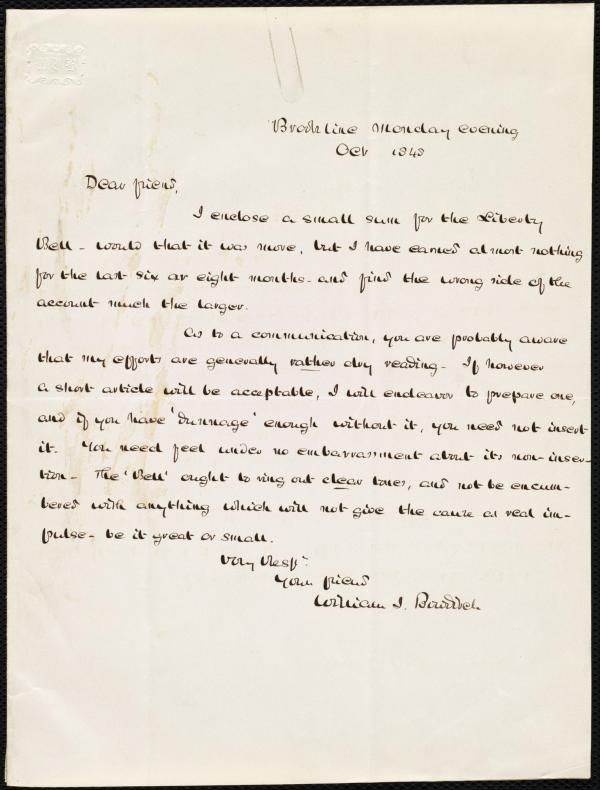 Brookline Monday evening
Oct 1848
Dear friend,
I enclose a small sum for the Liberty
Bell - would that it was more, but I have earned almost nothing
for the last six or eight months - and find the wrong side of the
account much the larger.
As to a communication, you are probably aware
that my efforts are generally rather dry reading - If however
a short article will be acceptable, I will endeavor to prepare one,
and if you have 'dunnage' enough without it, you need not insert
it. You need feel under no embarrassment about its non-inser-
tion - The 'Bell' ought to ring out clear tones, and not be encum-
bered with anything which will not give the cause a real im-
pulse - be it great or small.
Very Respy.
Your friend
William I. Bowditch